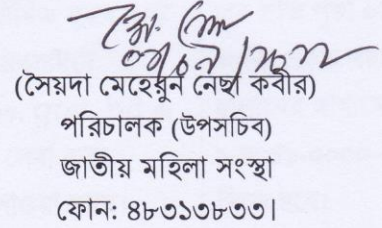 (সৈয়দা মেহেরুন নেছা কবীর)
পরিচালক (উপসচিব)
জাতীয় মহিলা সংস্থা
ফোন: ৪৮৩১৩৮৩৩।